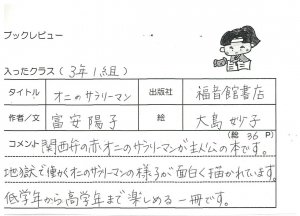 ブックレビュー
入ったクラス（3年1組）
タイトル オニのサラリーマン 出版社 福音館書店
作者/文 富安陽子 絵 大島妙子
（総 36 P）
コメント 関西弁の赤オニのサラリーマンが主人公の本です。
地獄で働くオニのサラリーマンの様子が面白く描かれています。
低学年から高学年まで楽しめる一冊です。